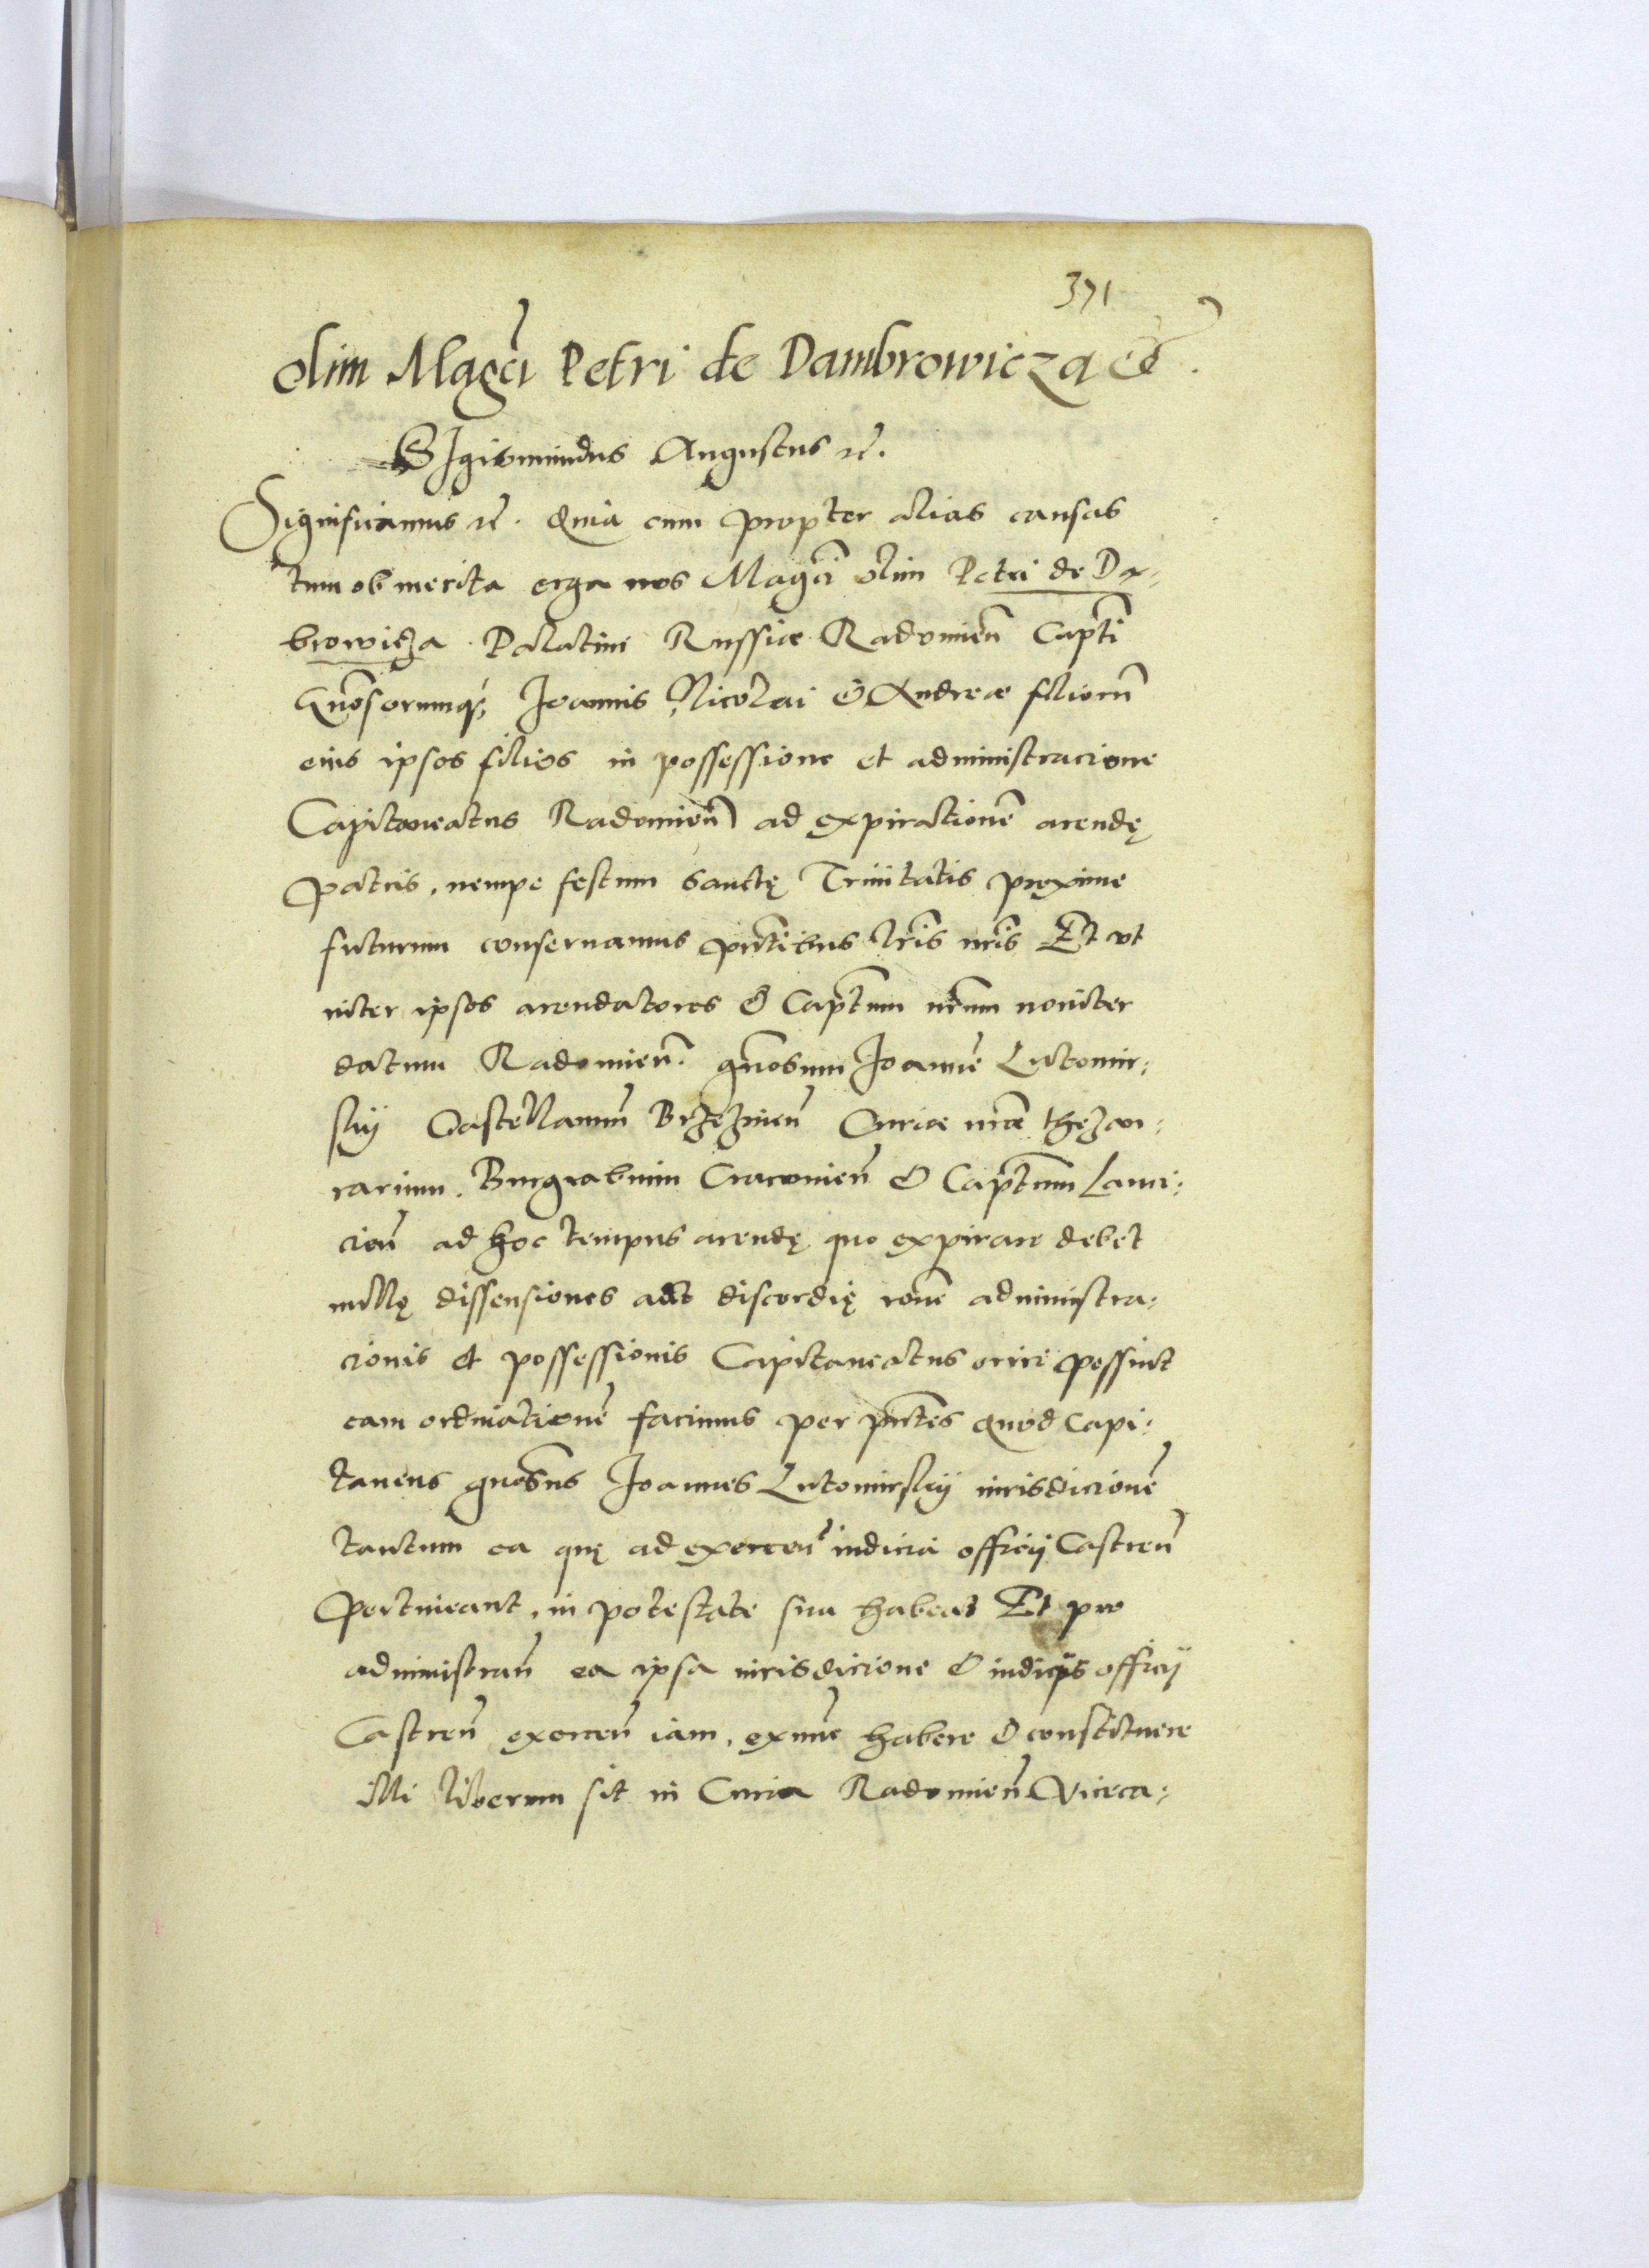 371
olim Magci Petri de Dambrowicza etc.
SIgismundus Augustus etc.
Significamus etc. Quia cum propter alias causas
tum ob merita erga nos Magci olim Petri de Da-
browicza Palatini Russiae Radomien Capti
Gnosorumque Joannis Nicolai & Andreae filiorum
eius ipsos filios in possessione et administracione
Capitaneatus Radomien ad expirationem arendę
patris, nempe festum Sanctę Trinitatis proxime
futurum conservamus pntibus lris nris Et ut
inter ipsos arendatores & Captum nrum noviter
datum Radomien. gnosum Joanne Lutomir-
skij Castellanum Brzezinen Curiae nrae thezau-
rarium. Burgrabium Cracovien & Captum Lanci-
cien ad hoc tempus arendę quo expirare debet
nullę dissensiones aut discordię rone administra-
cionis et possessionis Capitaneatus oriri possint
eam ordinatione facimus per pntes quod Capi-
taneus gnosus Joannes Lutomirskij iurisdicione
tantum ea quę ad exercen iudicia officij Castren
pertineant, in potestate sua habeat Et pro
administran ea ipsa iurisdicione & iudicijs officij
Castren exercen iam, exnunc habere & constituere
illi liberum sit in Curia Radomien Viceca-